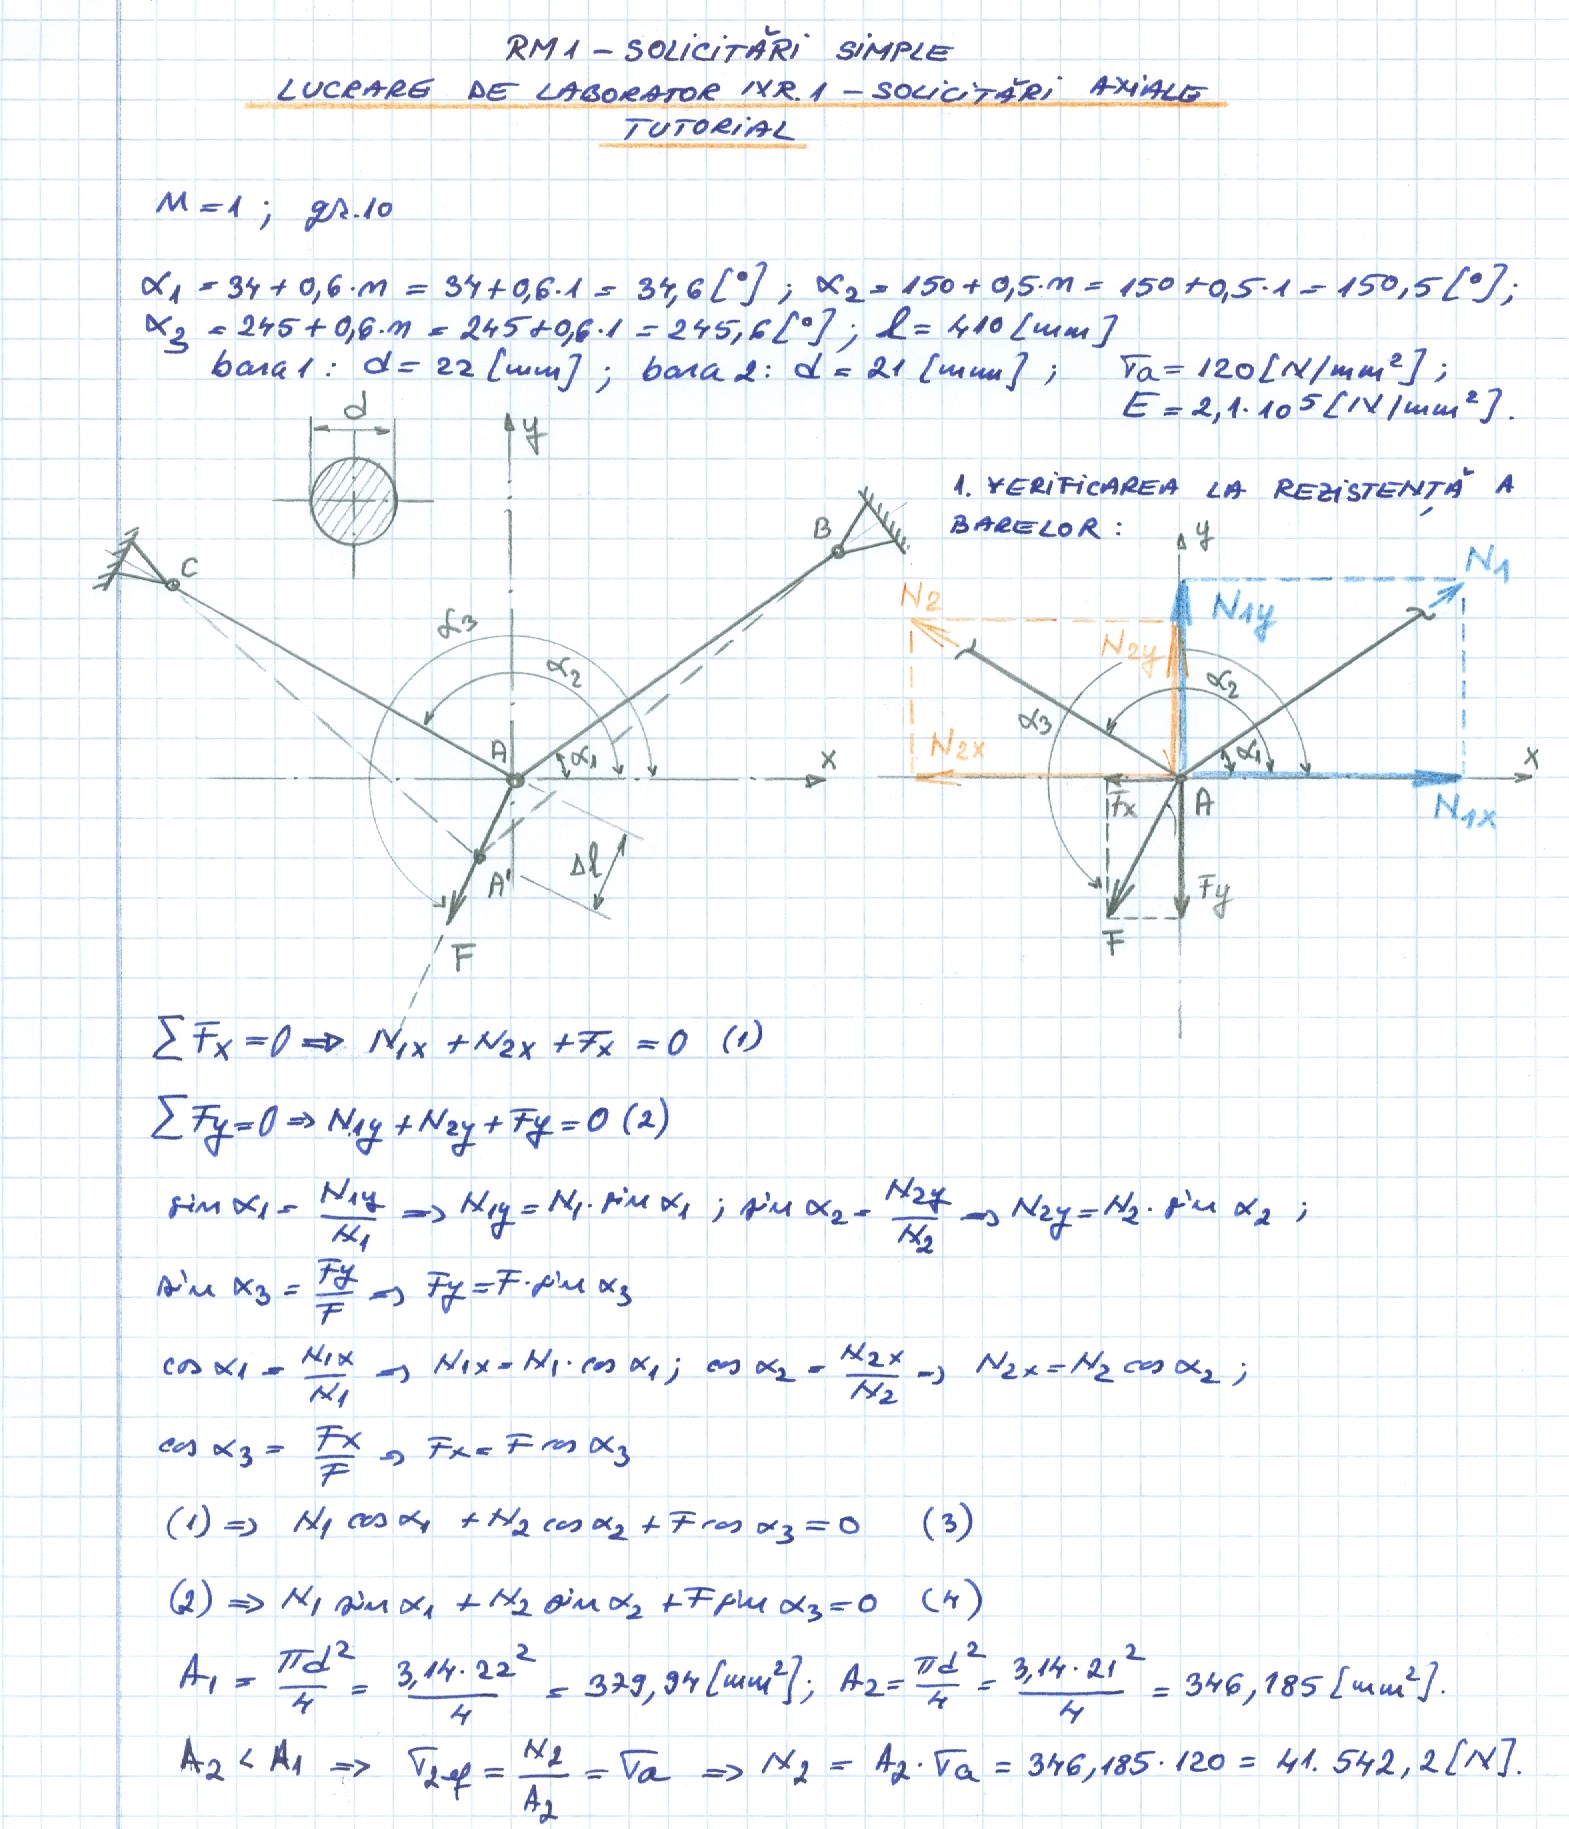 RM1 – SOLICITĂRI SIMPLE
LUCRARE DE LABORATOR NR.1 – SOLICITĂRI AXIALE
TUTORIAL
M = 1 ; gr.10
α1 = 34 + 0,6·n = 34 + 0,6·1 = 34,6 [°] ; α2 = 150 + 0,5·n = 150 + 0,5·1 = 150,5 [°] ;
α3 = 245 + 0,6·n = 245 + 0,6·1 = 245,6 [°] ; l = 410 [mm]
bara 1 : d = 22 [mm] ; bara 2 : d = 21 [mm] ; σa = 120 [N/mm²] ;
E = 2,1·10⁵ [N/mm²].
d
y
C
B
α3
α2
A
α1
x
A'
Δl
F
1. VERIFICAREA LA REZISTENȚĂ A
BARELOR :
y
N1
N2
N1y
N2y
α2
α3
N2x
α1
x
Fx
A
N1x
Fy
F
∑Fx = 0 ⇒ N1x + N2x + Fx = 0 (1)
∑Fy = 0 ⇒ N1y + N2y + Fy = 0 (2)
sin α1 = N1y/N1 ⇒ N1y = N1·sin α1 ; sin α2 = N2y/N2 ⇒ N2y = N2·sin α2 ;
sin α3 = Fy/F ⇒ Fy = F·sin α3
cos α1 = N1x/N1 ⇒ N1x = N1·cos α1 ; cos α2 = N2x/N2 ⇒ N2x = N2 cos α2 ;
cos α3 = Fx/F ⇒ Fx = F cos α3
(1) ⇒ N1 cos α1 + N2 cos α2 + F cos α3 = 0 (3)
(2) ⇒ N1 sin α1 + N2 sin α2 + F sin α3 = 0 (4)
A1 = πd²/4 = 3,14·22²/4 = 379,94 [mm²] ; A2 = πd²/4 = 3,14·21²/4 = 346,185 [mm²].
A2 < A1 ⇒ σ2ef = N2/A2 = σa ⇒ N2 = A2·σa = 346,185·120 = 41.542,2 [N].